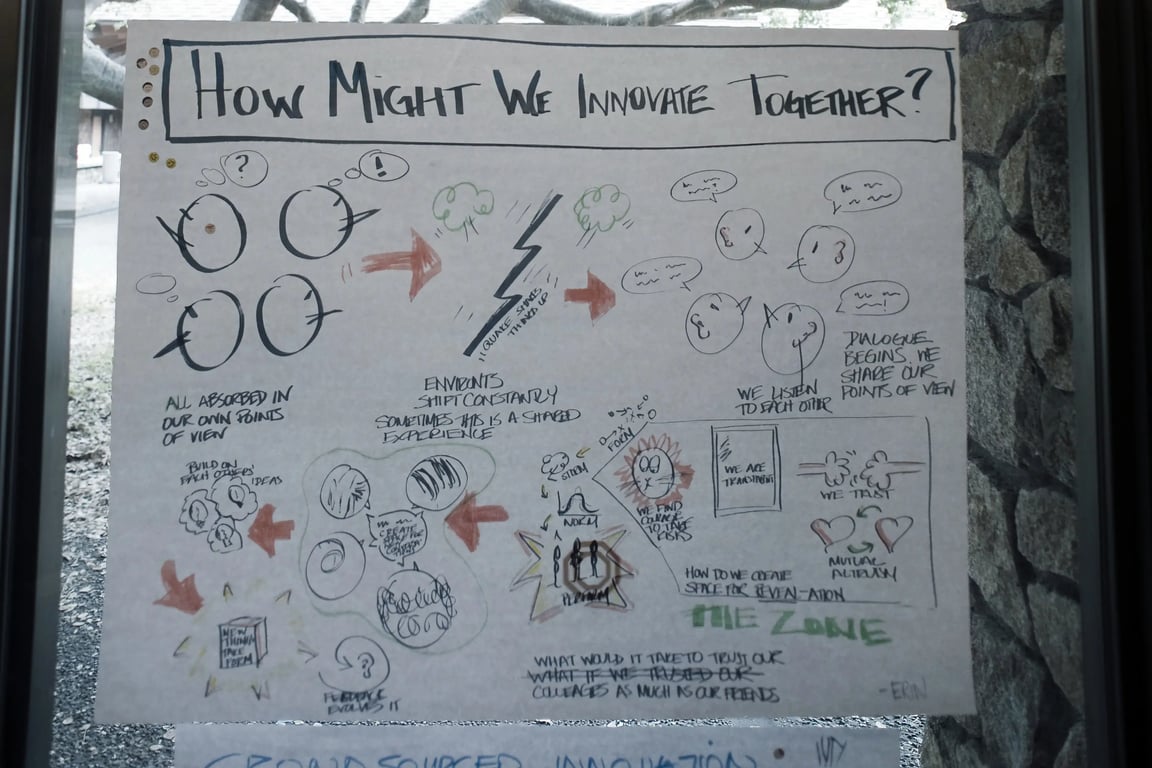 HOW MIGHT WE INNOVATE TOGETHER?
?
!
"QUAKE SHAKES
THINGS UP
ALL ABSORBED IN
OUR OWN POINTS
OF VIEW
SHIFT CONSTANTLY
SOMETIMES THIS IS A SHARED
EXPERIENCE
WE LISTEN
TO EACH OTHER
DIALOGUE
BEGINS. WE
SHARE OUR
POINTS OF VIEW
FORM
STORM
NORM
PERFORM
WE FIND
COURAGE
TO TAKE
RISKS
WE ARE
TRANSPARENT
WE TRUST
MUTUAL
ALTRUISM
HOW DO WE CREATE
SPACE FOR REVEN-ATION
THE ZONE
CREATE
SPACE FOR
BUILD ON
EACH OTHERS'
IDEAS
NEW
THINGS
TAKE
FORM
?
FEEDBACK
EVOLVES IT
WHAT WOULD IT TAKE TO TRUST OUR
WHAT IF WE TRUSTED OUR
COLLEAGES AS MUCH AS OUR FRIENDS
-ERIN
CROWD SOURCED INNOVATION